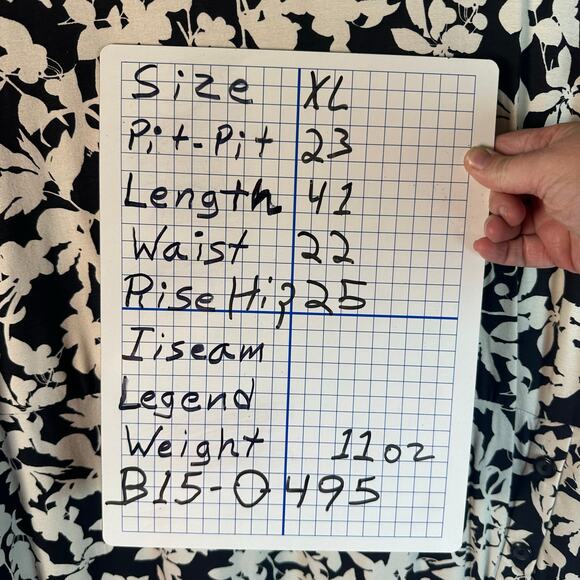 Size XL
Pit-Pit 23
Length 41
Waist 22
Rise Hip 25
Iiseam
Legend
Weight 11oz
B15-O495